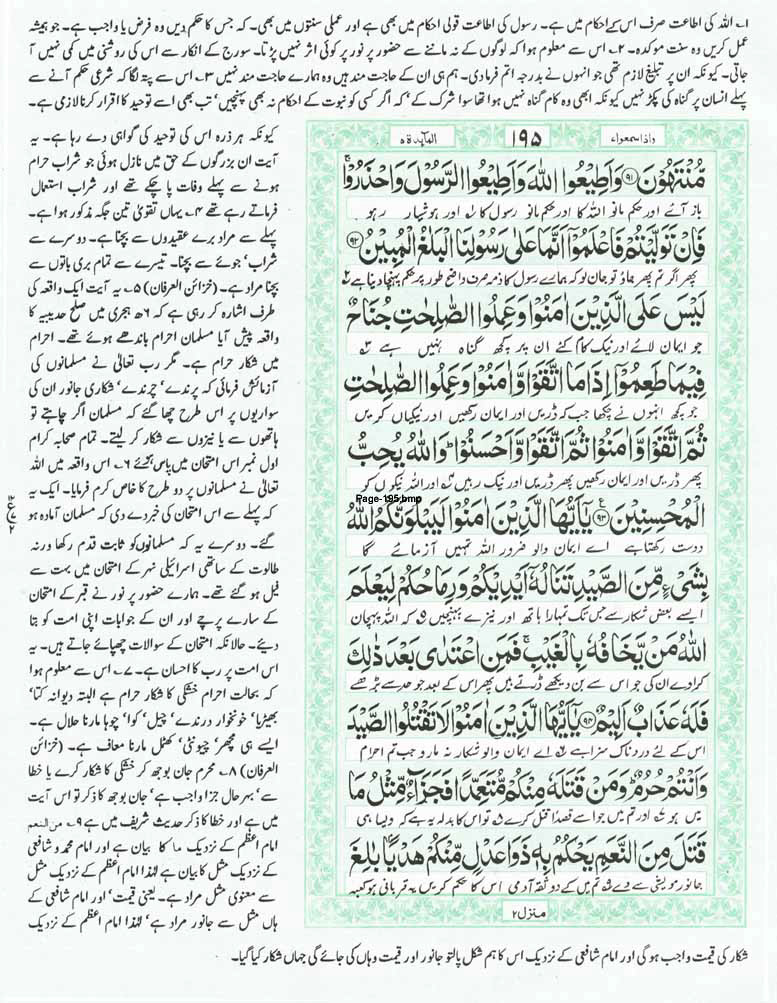 ۱؎ اللہ کی اطاعت صرف اس کے احکام میں ہے۔ رسول کی اطاعت قولی احکام میں بھی ہے اور عملی سنتوں میں بھی۔ کہ جس کا حکم دیں وہ فرض یا واجب ہے۔ جو ہمیشہ
عمل کریں وہ سنت موکدہ۔ ۲؎ اس سے معلوم ہوا کہ لوگوں کے نہ ماننے سے حضور پر نور پر کوئی اثر نہیں پڑتا۔ سورج کے انکار سے اس کی روشنی میں کمی نہیں آ
جاتی۔ کیونکہ ان پر تبلیغ لازم تھی جو انہوں نے بدرجہ اتم فرمادی۔ ہم ہی ان کے حاجت مند ہیں وہ ہمارے حاجت مند نہیں ۳؎ اس سے پتہ لگا کہ شرعی حکم آنے سے
پہلے انسان پر گناہ کی پکڑ نہیں کیونکہ ابھی وہ کام گناہ نہیں ہوا تھا سوا شرک کے' کہ اگر کسی کو نبوت کے احکام نہ بھی پہنچیں' تب بھی اسے توحید کا اقرار کرنا لازمی ہے۔
کیونکہ ہر ذرہ اس کی توحید کی گواہی دے رہا ہے۔ یہ
آیت ان بزرگوں کے حق میں نازل ہوئی جو شراب حرام
ہونے سے پہلے وفات پا چکے تھے اور شراب استعمال
فرماتے رہے تھے ۴؎ یہاں تقویٰ تین جگہ مذکور ہوا ہے۔
پہلے سے مراد برے عقیدوں سے بچنا ہے۔ دوسرے سے
شراب' جوئے سے بچنا۔ تیسرے سے تمام بری باتوں سے
بچنا مراد ہے۔ (خزائن العرفان) ۵؎ یہ آیت ایک واقعہ کی
طرف اشارہ کر رہی ہے کہ ۶ھ ہجری میں صلح حدیبیہ کا
واقعہ پیش آیا مسلمان احرام باندھے ہوئے تھے۔ احرام
میں شکار حرام ہے۔ مگر رب تعالیٰ نے مسلمانوں کی
آزمائش فرمائی کہ پرندے' چرندے' شکاری جانور ان کی
سواریوں پر اس طرح چھا گئے کہ مسلمان اگر چاہتے تو
ہاتھوں سے یا نیزوں سے شکار کر لیتے۔ تمام صحابہ کرام
اول نمبر اس امتحان میں پاس ہوئے ۶؎ اس واقعہ میں اللہ
تعالیٰ نے مسلمانوں پر دو طرح کا خاص کرم فرمایا۔ ایک یہ
کہ پہلے سے اس امتحان کی خبر دے دی کہ مسلمان آمادہ ہو
گئے۔ دوسرے یہ کہ مسلمانوں کو ثابت قدم رکھا ورنہ
طالوت کے ساتھی اسرائیلی نہر کے امتحان میں بہت سے
فیل ہو گئے تھے۔ ہمارے حضور پر نور نے قبر کے امتحان
کے سارے پرچے اور ان کے جوابات اپنی امت کو بتا
دیئے۔ حالانکہ امتحان کے سوالات چھپائے جاتے ہیں۔ یہ
اس امت پر رب کا احسان ہے۔ ۷؎ اس سے معلوم ہوا
کہ بحالت احرام خشکی کا شکار حرام ہے البتہ دیوانہ کتا'
بھیڑیا' خونخوار درندے' چیل' کوا' چوہا مارنا حلال ہے۔
ایسے ہی مچھر' چیونٹی' کھٹمل مارنا معاف ہے۔ (خزائن
العرفان) ۸؎ محرم جان بوجھ کر خشکی کا شکار کرے یا خطا
سے' بہر حال جزا واجب ہے' جان بوجھ کا ذکر تو اس آیت
میں ہے اور خطا کا ذکر حدیث شریف میں ہے ۹؎ من النعم
امام اعظم کے نزدیک ما کا بیان ہے اور امام محمد و شافعی
کے نزدیک مثل کا بیان ہے لہٰذا امام اعظم کے نزدیک مثل
سے معنوی مثل مراد ہے۔ یعنی قیمت' اور امام شافعی کے
ہاں مثل سے جانور مراد ہے' لہٰذا امام اعظم کے نزدیک
واذا سمعوا ۷
۱۹۵
المآئدة ۵
مُّنْتَهُوْنَ ۝۹۱ وَاَطِيْعُوا اللّٰهَ وَاَطِيْعُوا الرَّسُوْلَ وَاحْذَرُوْا ۚ
باز آئے اور حکم مانو اللہ کا اور حکم مانو رسول کا ۱؎ اور ہوشیار رہو
فَاِنْ تَوَلَّيْتُمْ فَاعْلَمُوْٓا اَنَّمَا عَلٰى رَسُوْلِنَا الْبَلٰغُ الْمُبِيْنُ ۝۹۲
پھر اگر تم پھر جاؤ تو جان لو کہ ہمارے رسول کا ذمہ صرف واضح طور پر حکم پہنچا دینا ہے ۲؎
لَيْسَ عَلَى الَّذِيْنَ اٰمَنُوْا وَعَمِلُوا الصّٰلِحٰتِ جُنَاحٌ
جو ایمان لائے اور نیک کام کئے ان پر کچھ گناہ نہیں ہے ۳؎
فِيْمَا طَعِمُوْٓا اِذَا مَا اتَّقَوْا وَّاٰمَنُوْا وَعَمِلُوا الصّٰلِحٰتِ
جو کچھ انہوں نے چکھا جب کہ ڈریں اور ایمان رکھیں اور نیکیاں کریں
ثُمَّ اتَّقَوْا وَّاٰمَنُوْا ثُمَّ اتَّقَوْا وَّاَحْسَنُوْا ۭ وَاللّٰهُ يُحِبُّ
پھر ڈریں اور ایمان رکھیں پھر ڈریں اور نیک رہیں ۴؎ اور اللہ نیکوں کو
Page-195.bmp
الْمُحْسِنِيْنَ ۝۹۳ يٰٓاَيُّهَا الَّذِيْنَ اٰمَنُوْا لَيَبْلُوَنَّكُمُ اللّٰهُ
دوست رکھتا ہے اے ایمان والو ضرور اللہ تمہیں آزمائے گا
بِشَيْءٍ مِّنَ الصَّيْدِ تَنَالُهٗٓ اَيْدِيْكُمْ وَرِمَاحُكُمْ لِيَعْلَمَ
ایسے بعض شکار سے جس تک تمہارا ہاتھ اور نیزے پہنچیں ۵؎ کہ اللہ پہچان
اللّٰهُ مَنْ يَّخَافُهٗ بِالْغَيْبِ ۚ فَمَنِ اعْتَدٰى بَعْدَ ذٰلِكَ
کرا دے ان کی جو اس سے بن دیکھے ڈرتے ہیں پھر اس کے بعد جو حد سے بڑھے
فَلَهٗ عَذَابٌ اَلِيْمٌ ۝۹۴ يٰٓاَيُّهَا الَّذِيْنَ اٰمَنُوْا لَا تَقْتُلُوا الصَّيْدَ
اس کے لئے دردناک سزا ہے ۶؎ اے ایمان والو شکار نہ مارو جب تم احرام
وَاَنْتُمْ حُرُمٌ ۭ وَمَنْ قَتَلَهٗ مِنْكُمْ مُّتَعَمِّدًا فَجَزَآءٌ مِّثْلُ مَا
میں ہو ۷؎ اور تم میں جو اسے قصدًا قتل کرے ۸؎ تو اس کا بدلہ یہ ہے کہ ویسا ہی
قَتَلَ مِنَ النَّعَمِ يَحْكُمُ بِهٖ ذَوَا عَدْلٍ مِّنْكُمْ هَدْيًۢا بٰلِغَ
جانور مویشی سے دے ۹؎ تم میں کے دو ثقہ آدمی اس کا حکم کریں یہ قربانی ہو کعبہ
منزل ۲
شکار کی قیمت واجب ہوگی اور امام شافعی کے نزدیک اس کا ہم شکل پالتو جانور اور قیمت وہاں کی جائے گی جہاں شکار کیا گیا۔